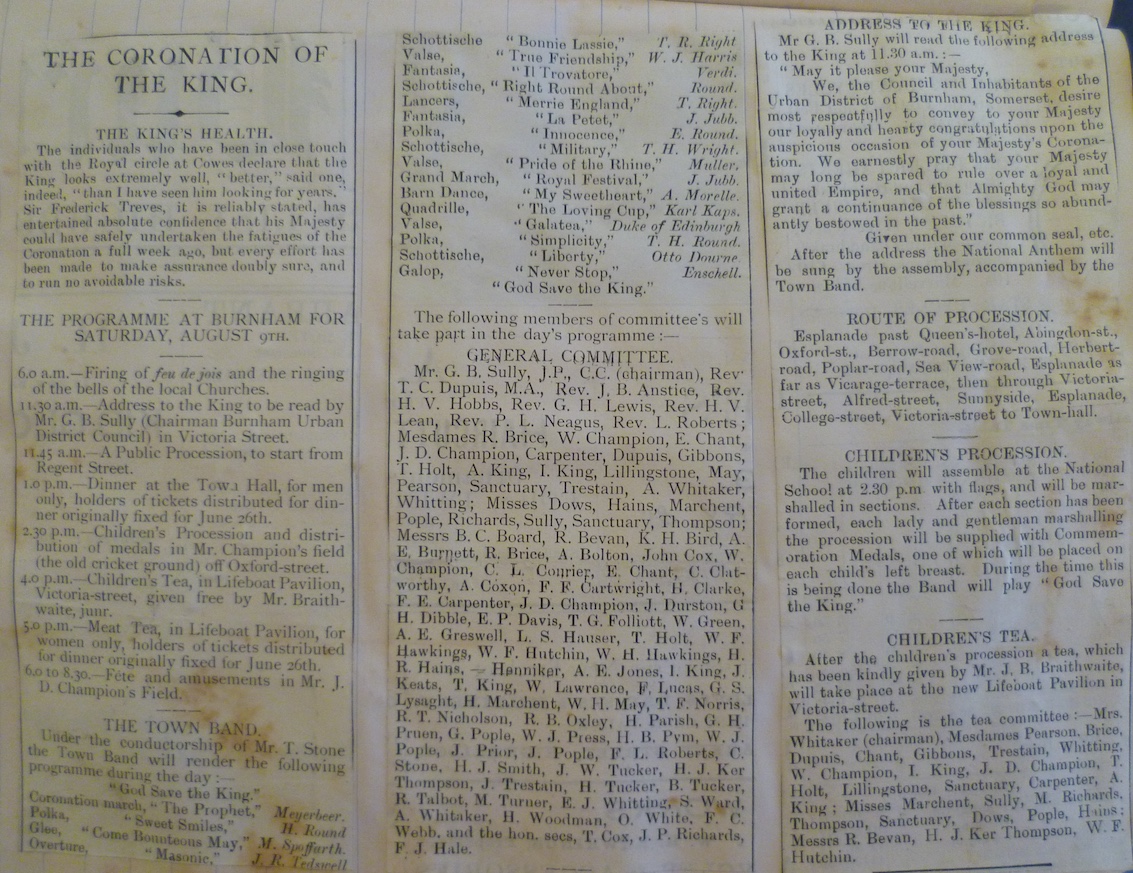 THE CORONATION OF
THE KING.
THE KING'S HEALTH.
The individuals who have been in close touch
with the Royal circle at Cowes declare that the
King looks extremely well, "better," said one,
indeed, "than I have seen him looking for years."
Sir Frederick Treves, it is reliably stated, has
entertained absolute confidence that his Majesty
could have safely undertaken the fatigues of the
Coronation a full week ago, but every effort has
been made to make assurance doubly sure, and
to run no avoidable risks.
THE PROGRAMME AT BURNHAM FOR
SATURDAY, AUGUST 9TH.
6.0 a.m.—Firing of feu de jois and the ringing
of the bells of the local Churches.
11.30 a.m.—Address to the King to be read by
Mr. G. B. Sully (Chairman Burnham Urban
District Council) in Victoria Street.
11.45 a.m.—A Public Procession, to start from
Regent Street.
1.0 p.m.—Dinner at the Town Hall, for men
only, holders of tickets distributed for din-
ner originally fixed for June 26th.
2.30 p.m.—Children's Procession and distri-
bution of medals in Mr. Champion's field
(the old cricket ground) off Oxford-street.
4.0 p.m.—Children's Tea, in Lifeboat Pavilion,
Victoria-street, given free by Mr. Braith-
waite, junr.
5.0 p.m.—Meat Tea, in Lifeboat Pavilion, for
women only, holders of tickets distributed
for dinner originally fixed for June 26th.
6.0 to 8.30.—Fete and amusements in Mr. J.
D. Champion's Field.
THE TOWN BAND.
Under the conductorship of Mr. T. Stone
the Town Band will render the following
programme during the day :—
"God Save the King."
Coronation march, "The Prophet," Meyerbeer.
Polka, "Sweet Smiles," H. Round
Glee, "Come Bounteous May," M. Spofforth.
Overture, "Masonic," J. R. Tedswell
Schottische "Bonnie Lassie," T. R. Right
Valse, "True Friendship," W. J. Harris
Fantasia, "Il Trovatore," Verdi.
Schottische, "Right Round About," Round.
Lancers, "Merrie England," T. Right.
Fantasia, "La Petet," J. Jubb.
Polka, "Innocence," E. Round.
Schottische, "Military," T. H. Wright.
Valse, "Pride of the Rhine," Muller.
Grand March, "Royal Festival," J. Jubb.
Barn Dance, "My Sweetheart," A. Morelle.
Quadrille, "The Loving Cup," Karl Kaps.
Valse, "Galatea," Duke of Edinburgh
Polka, "Simplicity," T. H. Round.
Schottische, "Liberty," Otto Dourne.
Galop, "Never Stop," Enschell.
"God Save the King."
The following members of committee's will
take part in the day's programme :—
GENERAL COMMITTEE.
Mr. G. B. Sully, J.P., C.C. (chairman), Rev.
T. C. Dupuis, M.A., Rev. J. B. Anstice, Rev.
H. V. Hobbs, Rev. G. H. Lewis, Rev. H. V.
Lean, Rev. P. L. Neagus, Rev. L. Roberts ;
Mesdames R. Brice, W. Champion, E. Chant,
J. D. Champion, Carpenter, Dupuis, Gibbons,
T. Holt, A. King, I. King, Lillingstone, May,
Pearson, Sanctuary, Trestain, A. Whitaker,
Whitting; Misses Dows, Hains, Marchent,
Pople, Richards, Sully, Sanctuary, Thompson;
Messrs B. C. Board, R. Bevan, K. H. Bird, A.
E. Burnett, R. Brice, A. Bolton, John Cox, W.
Champion, C. L. Conrier, E. Chant, C. Clat-
worthy, A. Coxon, F. F. Cartwright, H. Clarke,
F. E. Carpenter, J. D. Champion, J. Durston, G
H. Dibble, E. P. Davis, T. G. Folliott, W. Green,
A. E. Greswell, L. S. Hauser, T. Holt, W. F.
Hawkings, W. F. Hutchin, W. H. Hawkings, H.
R. Hains, — Henniker, A. E. Jones, I. King, J.
Keats, T. King, W. Lawrence, F. Lucas, G. S.
Lysaght, H. Marchent, W. H. May, T. F. Norris,
R. T. Nicholson, R. B. Oxley, H. Parish, G. H.
Pruen, G. Pople, W. J. Press, H. B. Pym, W. J.
Pople, J. Prior, J. Pople, F. L. Roberts, C.
Stone, H. J. Smith, J. W. Tucker, H. J. Ker
Thompson, J. Trestain, H. Tucker, B. Tucker,
R. Talbot, M. Turner, E. J. Whitting, S. Ward,
A. Whitaker, H. Woodman, O. White, F. C.
Webb, and the hon. secs, T. Cox, J. P. Richards,
F. J. Hale.
ADDRESS TO THE KING.
Mr G. B. Sully will read the following address
to the King at 11.30 a.m. :—
"May it please your Majesty,
We, the Council and Inhabitants of the
Urban District of Burnham, Somerset, desire
most respectfully to convey to your Majesty
our loyally and hearty congratulations upon the
auspicious occasion of your Majesty's Corona-
tion. We earnestly pray that your Majesty
may long be spared to rule over a loyal and
united Empire, and that Almighty God may
grant a continuance of the blessings so abund-
antly bestowed in the past."
Given under our common seal, etc.
After the address the National Anthem will
be sung by the assembly, accompanied by the
Town Band.
ROUTE OF PROCESSION.
Esplanade past Queen's-hotel, Abingdon-st.,
Oxford-st., Berrow-road, Grove-road, Herbert-
road, Poplar-road, Sea View-road, Esplanade as
far as Vicarage-terrace, then through Victoria-
street, Alfred-street, Sunnyside, Esplanade,
College-street, Victoria-street to Town-hall.
CHILDREN'S PROCESSION.
The children will assemble at the National
School at 2.30 p.m. with flags, and will be mar-
shalled in sections. After each section has been
formed, each lady and gentleman marshalling
the procession will be supplied with Commem-
oration Medals, one of which will be placed on
each child's left breast. During the time this
is being done the Band will play "God Save
the King."
CHILDREN'S TEA.
After the children's procession a tea, which
has been kindly given by Mr. J. B. Braithwaite,
will take place at the new Lifeboat Pavilion in
Victoria-street.
The following is the tea committee :—Mrs.
Whitaker (chairman), Mesdames Pearson, Brice,
Dupuis, Chant, Gibbons, Trestain, Whitting,
W. Champion, I. King, J. D. Champion, T.
Holt, Lillingstone, Sanctuary, Carpenter, A.
King ; Misses Marchent, Sully, M. Richards,
Thompson, Sanctuary, Dows, Pople, Hains ;
Messrs R. Bevan, H. J. Ker Thompson, W. F.
Hutchin.